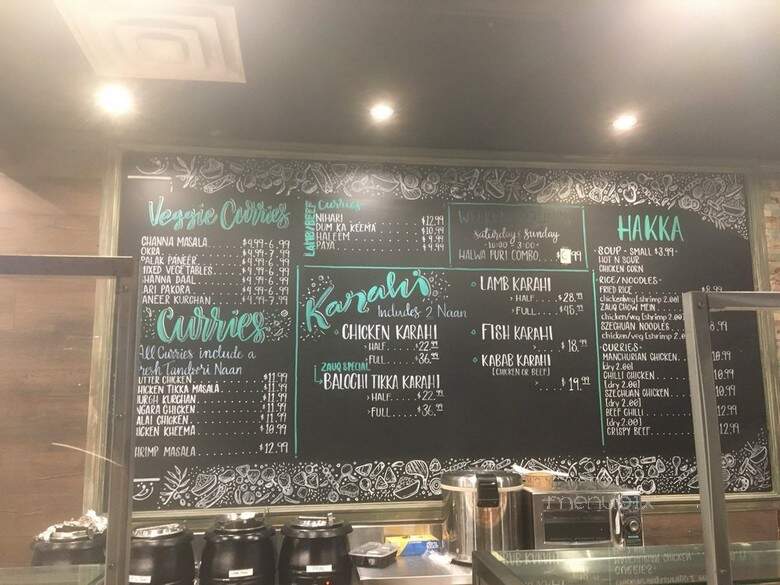 Veggie Curries
CHANNA MASALA $4.99-6.99
OKRA $4.99-6.99
PALAK PANEER $4.99-6.99
MIXED VEGETABLES $4.99-6.99
HANNA DAAL $4.99-6.99
ARI PAKORA $4.99-6.99
ANEER KURGHAN $4.99-7.99
Curries
All Curries include a
resh Tandoori Naan
UTTER CHICKEN $11.99
HICKEN TIKKA MASALA $11.99
URGH KURGHAN $11.99
NGARA CHICKEN $11.99
ALAI CHICKEN $11.99
HICKEN KHEEMA $10.99
HRIMP MASALA $12.99
LAMB/BEEF Curries
NIHARI $12.99
DUM KA KEEMA $10.99
HALEEM $9.99
PAYA $9.99
Saturday & Sunday
10:00 - 3:00
HALWA PURI COMBO
Karahi
Includes 2 Naan
CHICKEN KARAHI
HALF $22.99
FULL $36.99
ZAUQ SPECIAL
BALOCHI TIKKA KARAHI
HALF $22.99
FULL $36.99
LAMB KARAHI
HALF $28.99
FULL $45.99
FISH KARAHI
$18.99
KABAB KARAHI
(CHICKEN OR BEEF)
$19.99
HAKKA
SOUP - SMALL $3.99
HOT N SOUR
CHICKEN CORN
RICE/NOODLES
FRIED RICE 8.99
chicken/veg [shrimp 2.00]
ZAUQ CHOW MEIN
chicken/veg [shrimp 2.00]
SZECHUAN NOODLES 8.99
chicken/veg [shrimp 2.0
CURRIES
MANCHURIAN CHICKEN 10.99
[dry 2.00]
CHILLI CHICKEN 10.99
[dry 2.00]
SZECHUAN CHICKEN 10.99
[dry 2.00]
BEEF CHILLI 12.99
[dry 2.00]
CRISPY BEEF 12.99
menupix